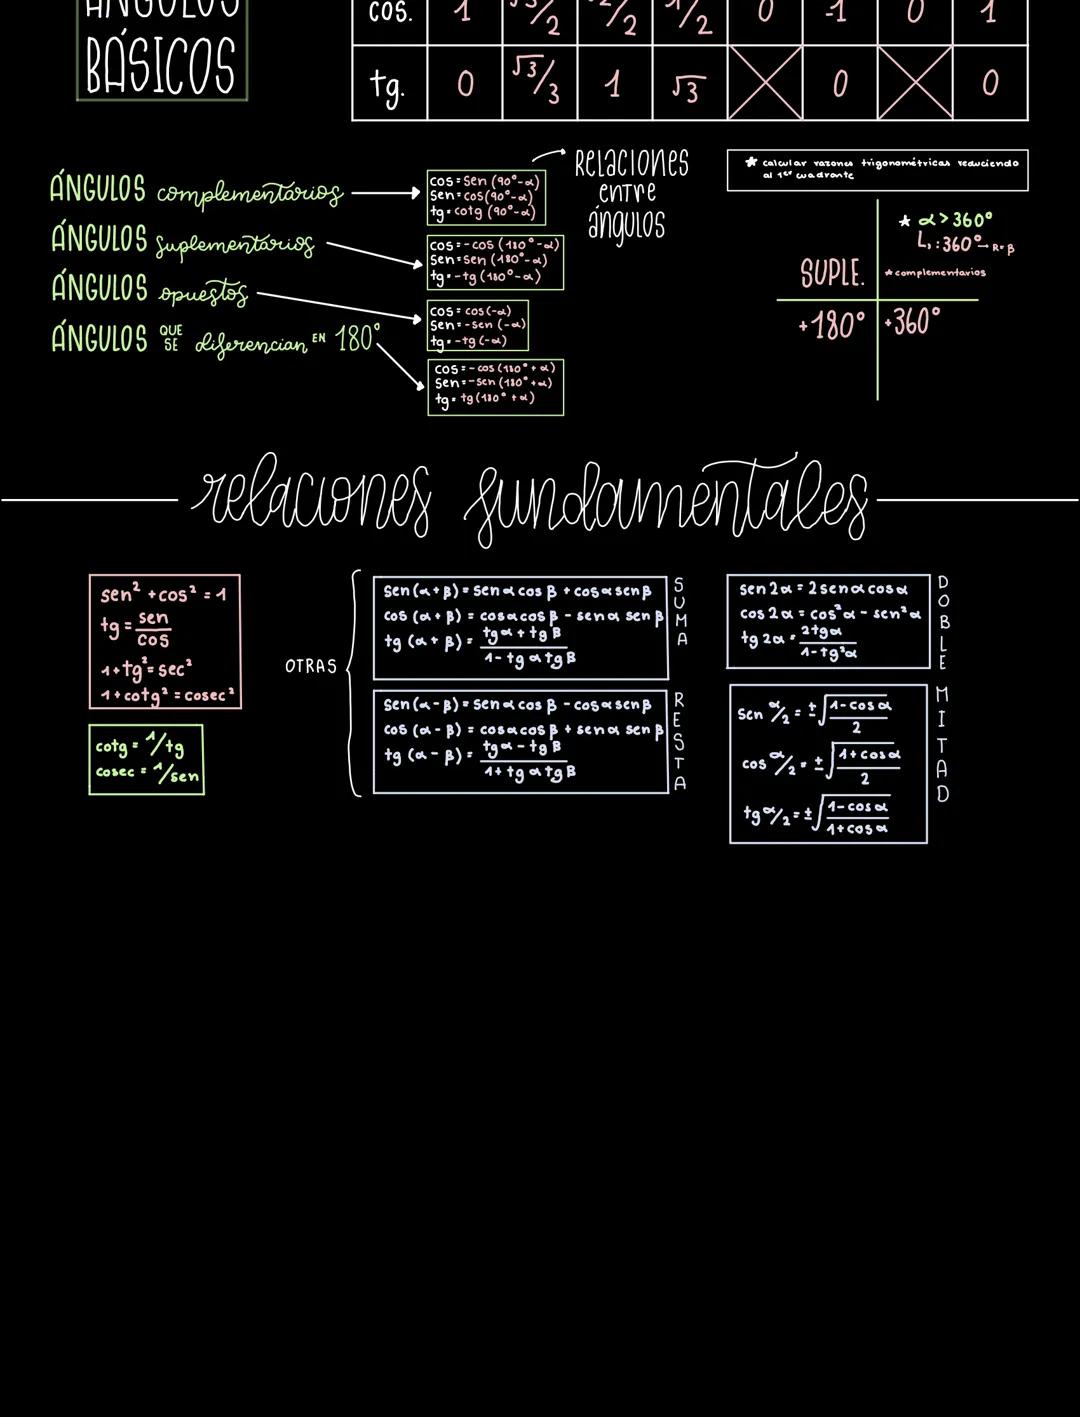 ÁNGULOS
BÁSICOS
cos. 1 √3/2 √2/2 1/2 0 -1 0 1
tg. 0 √3/3 1 √3 0 0
RELACIONES
entre
ángulos
ÁNGULOS complementarios
cos = sen (90°-α)
sen = cos (90°-α)
tg = cotg (90°-α)
ÁNGULOS suplementarios
cos = -cos (180°-α)
sen = sen (180°-α)
tg = -tg (180°-α)
ÁNGULOS opuestos
cos = cos (-α)
sen = -sen (-α)
tg = -tg (-α)
ÁNGULOS QUE SE diferencian EN 180°
cos = -cos (180° + α)
sen = -sen (180° + α)
tg = tg (180° + α)
* calcular razones trigonométricas reduciendo
al 1er cuadrante
* α > 360°
L, : 360° → R = β
SUPLE.
* complementarios
+180°
+360°
relaciones fundamentales
sen² + cos² = 1
tg = sen/cos
1 + tg² = sec²
1 + cotg² = cosec²
cotg = 1/tg
cosec = 1/sen
OTRAS
sen (α + β) = sen α cos β + cos α sen β
cos (α + β) = cos α cos β - sen α sen β
tg (α + β) = tg α + tg β / 1 - tg α tg β
SUMA
sen (α - β) = sen α cos β - cos α sen β
cos (α - β) = cos α cos β + sen α sen β
tg (α - β) = tg α - tg β / 1 + tg α tg β
RESTA
sen 2α = 2 sen α cos α
cos 2α = cos² α - sen² α
tg 2α = 2 tg α / 1 - tg² α
DOBLE
sen α/2 = ± √1 - cos α / 2
cos α/2 = ± √1 + cos α / 2
tg α/2 = ± √1 - cos α / 1 + cos α
MITAD